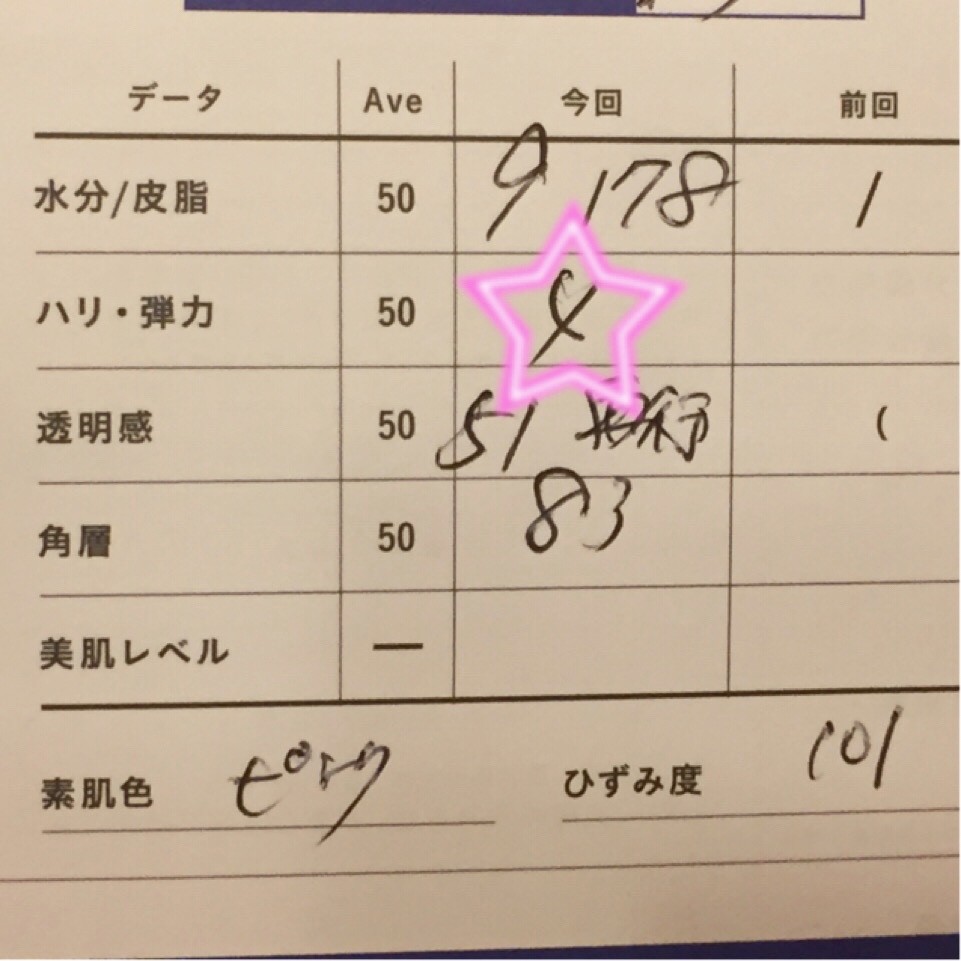 データ Ave 今回 前回
水分/皮脂 50 9 / 78
ハリ・弾力 50
透明感 50 51
角層 50 83
美肌レベル —
素肌色 ピンク ひずみ度 101